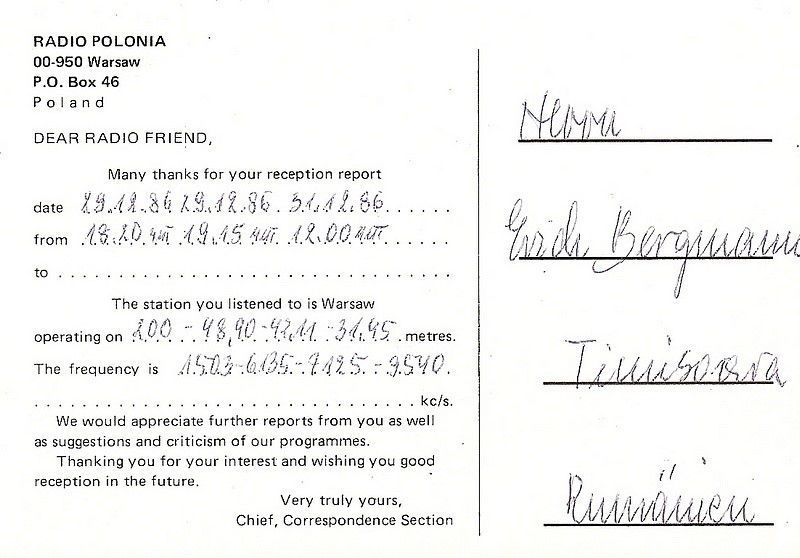 RADIO POLONIA
00-950 Warsaw
P.O. Box 46
Poland
DEAR RADIO FRIEND,
Many thanks for your reception report
date 29.12.86 29.12.86. 31.12.86.......
from 18.20 19.15 12.00
to ........................................
The station you listened to is Warsaw
operating on 200 - 48,90 - 42,11 - 31,45 . metres.
The frequency is 1503 - 6135 - 7125 - 9540.
........................................ kc/s.
We would appreciate further reports from you as well
as suggestions and criticism of our programmes.
Thanking you for your interest and wishing you good
reception in the future.
Very truly yours,
Chief, Correspondence Section
Herrn
Erich Bergmann
Timisoara
Rumänien